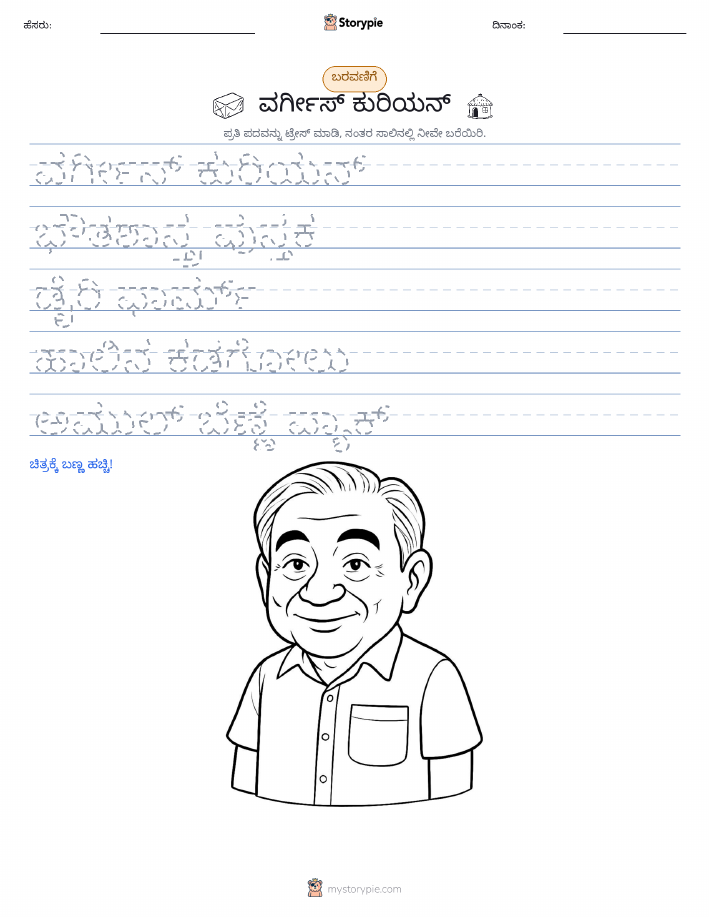 ಹೆಸರು:
Storypie
ದಿನಾಂಕ:
ಬರವಣಿಗೆ
ವರ್ಗೀಸ್ ಕುರಿಯನ್
ಪ್ರತಿ ಪದವನ್ನು ಟ್ರೇಸ್ ಮಾಡಿ, ನಂತರ ಸಾಲಿನಲ್ಲಿ ನೀವೇ ಬರೆಯಿರಿ.
ವರ್ಗೀಸ್ ಕುರಿಯನ್
ಭೌತಶಾಸ್ತ್ರ ಪುಸ್ತಕ
ಡೈರಿ ಫಾರ್ಮ್
ಹಾಲಿನ ಕಡಗೋಲು
ಅಮುಲ್ ಬೆಣ್ಣೆ ಪ್ಯಾಕ್
ಚಿತ್ರಕ್ಕೆ ಬಣ್ಣ ಹಚ್ಚಿ!
mystorypie.com